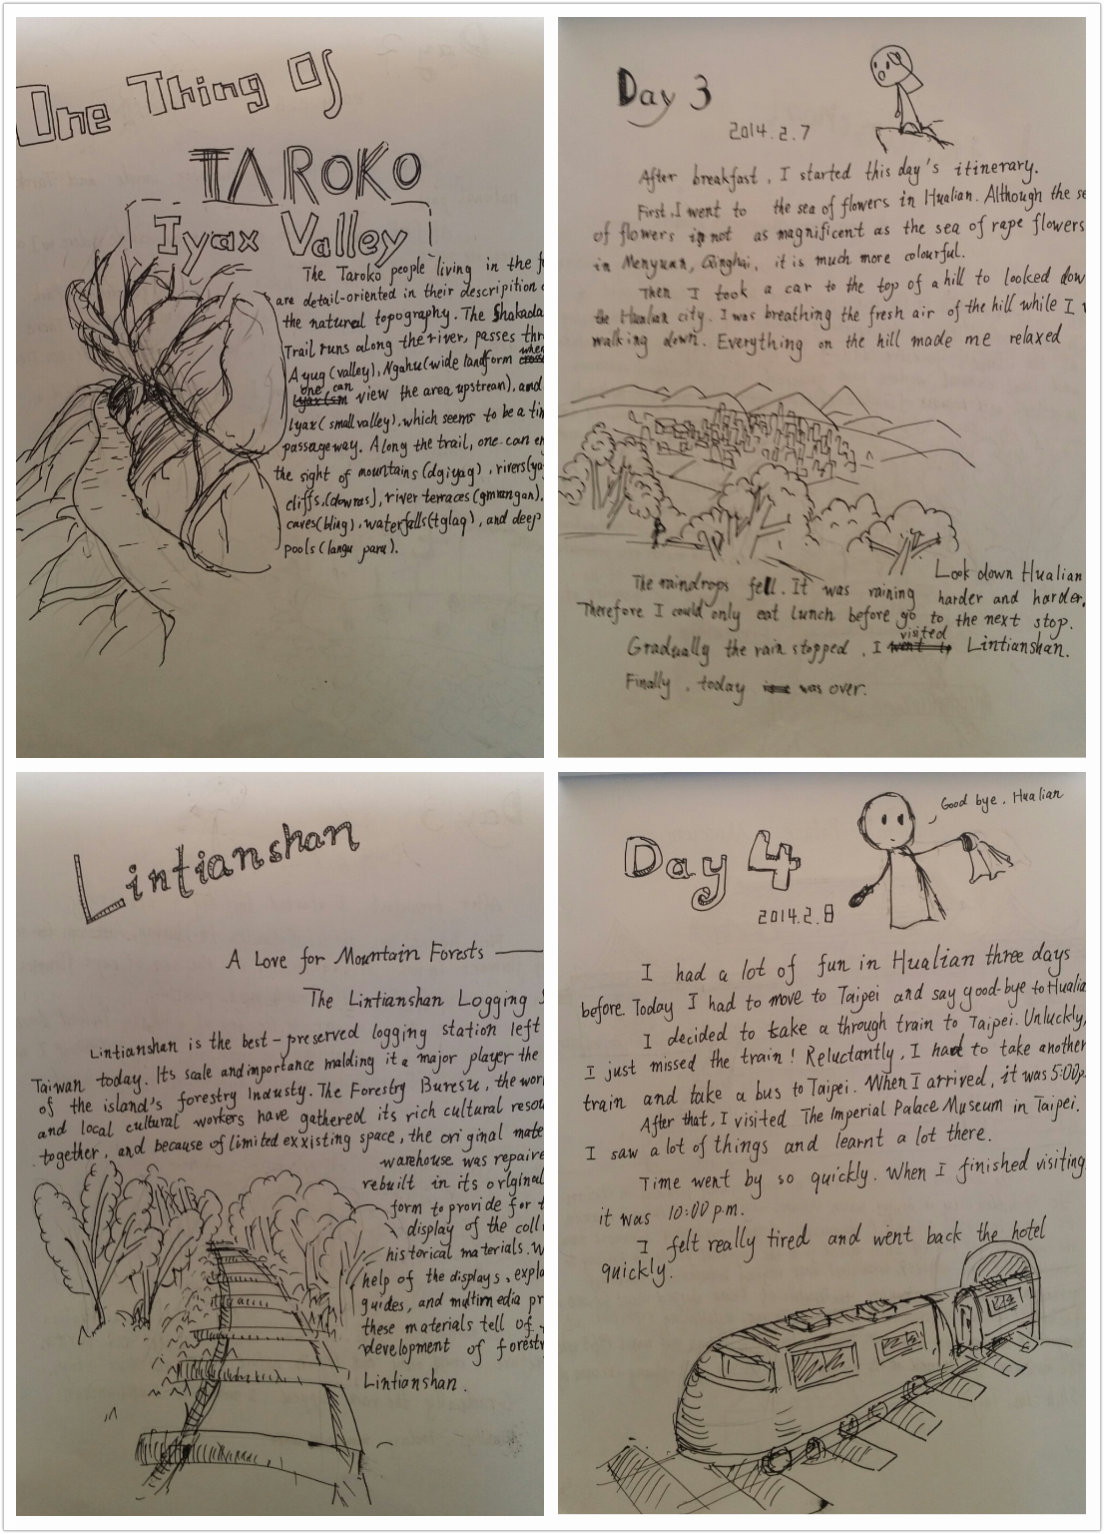 One Thing Of
TAROKO
Iyax Valley
The Taroko people living in the
are detail-oriented in their descripition
the natural topography. The Shakada
Trail runs along the river, passes thr
Ayug (valley), Ngahu (wide landform when
one can view the area upstrean), and
lyax (small valley), which seems to be a tin
passageway. Along the trail, one can en
the sight of mountains (dgiyaq), rivers (ya
cliffs, (downas), river terraces (gmrangan),
caves (bling), waterfalls (tglaq), and deep
pools (langu paru).
Day 3
2014.2.7
After breakfast, I started this day's itinerary.
First, I went to the sea of flowers in Hualian. Although the se
of flowers is not as magnificent as the sea of rape flowers
in Menyuan, Qinghai, it is much more colourful.
Then I took a car to the top of a hill to looked dow
the Hualian city. I was breathing the fresh air of the hill while I
walking down. Everything on the hill made me relaxed
Look down Hualian
The raindrops fell. It was raining harder and harder.
Therefore I could only eat lunch before go to the next stop.
Gradually the rain stopped, I visited Lintianshan.
Finally, today was over.
Lintianshan
A Love for Mountain Forests —
The Lintianshan Logging S
Lintianshan is the best-preserved logging station left
Taiwan today. Its scale and importance malding it a major player the
of the island's forestry Industy. The Forestry Buresu, the wor
and local cultural workers have gathered its rich cultural resou
together, and because of limited exxisting space, the original mate
warehouse was repaire
rebuilt in its original
form to provide for t
display of the coll
historical materials. W
help of the displays, expla
guides, and multimedia pr
these materials tell of
development of forestr
Lintianshan.
Good bye, Hualian
Day 4
2014.2.8
I had a lot of fun in Hualian three days
before. Today I had to move to Taipei and say good-bye to Hualia
I decided to take a through train to Taipei. Unluckly,
I just missed the train! Reluctantly, I had to take another
train and take a bus to Taipei. When I arrived, it was 5:00p.
After that, I visited The Imperial Palace Museum in Taipei.
I saw a lot of things and learnt a lot there.
Time went by so quickly. When I finished visiting
it was 10:00 p.m.
I felt really tired and went back the hotel
quickly.